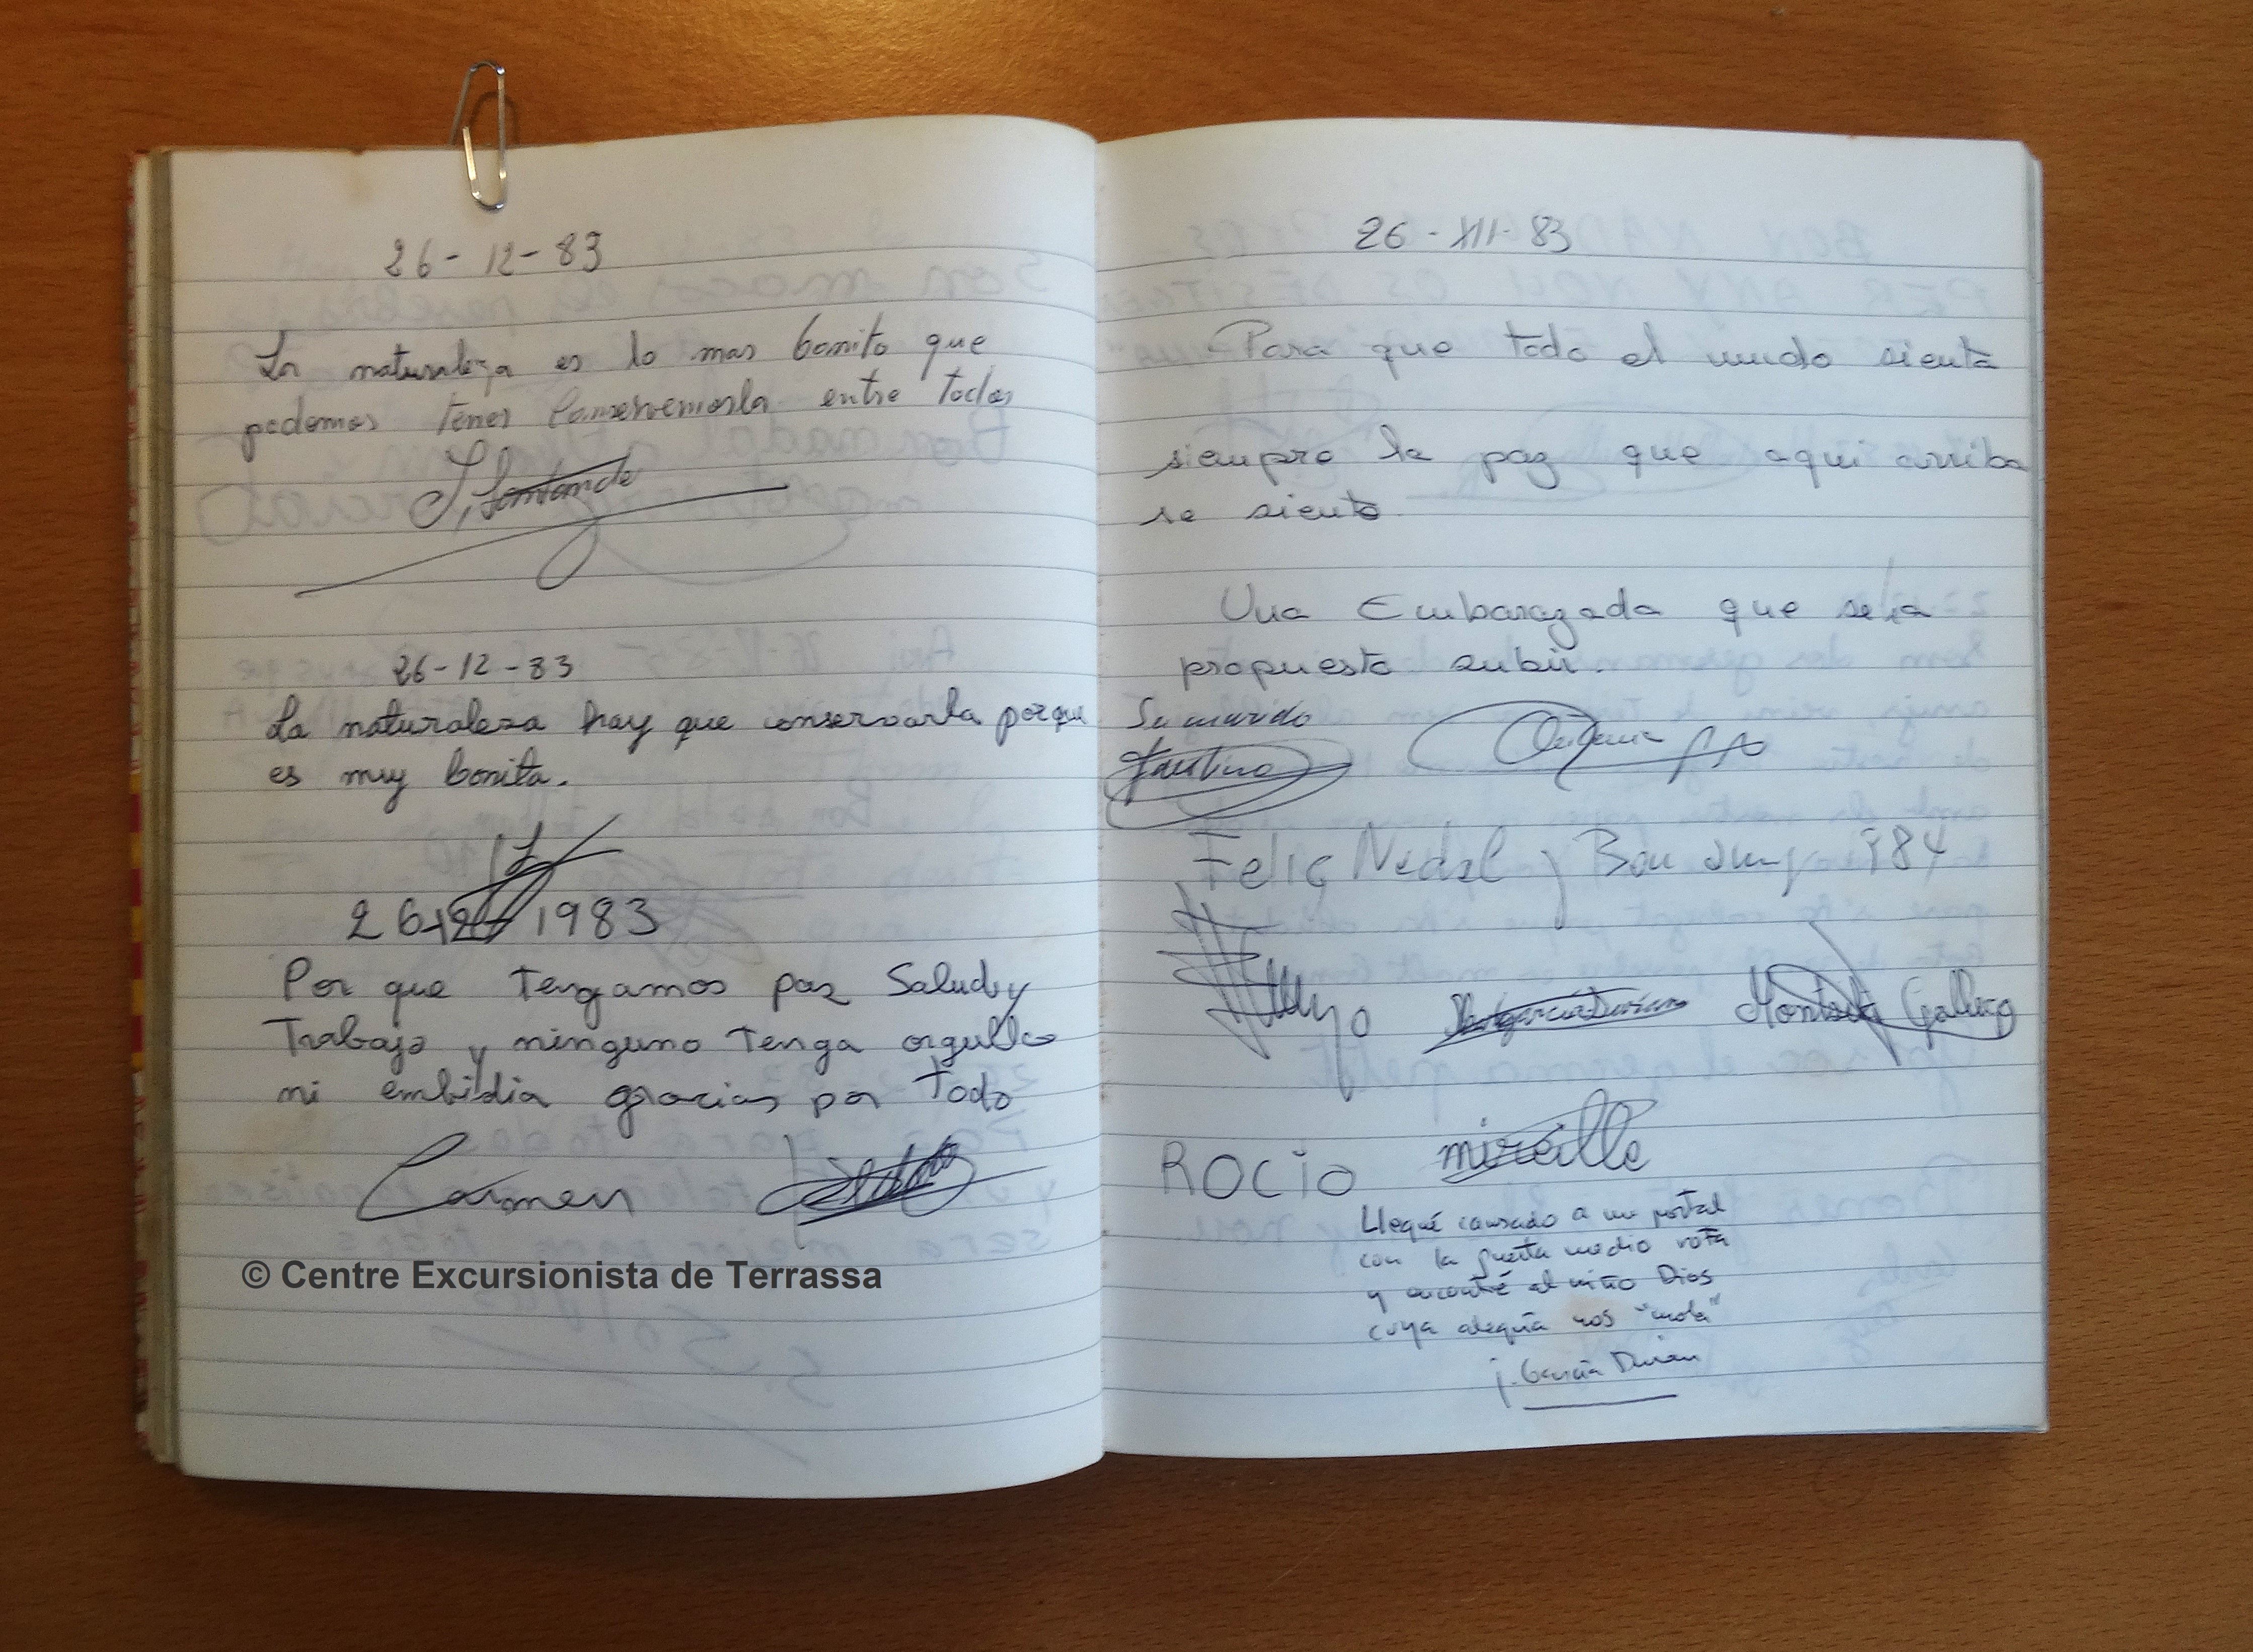 26-12-83
La naturaleza es lo mas bonito que
podemos tener Conservemosla entre todos
26-12-83
La naturaleza hay que conservarla porque
es muy bonita.
26-12-1983
Por que Tengamos paz Salud y
Trabajo y ninguno Tenga orgullo
ni embidia gracias por Todo
Carmen
© Centre Excursionista de Terrassa
26-XII-83
Para que todo el mundo sienta
siempre la paz que aqui arriba
se siente
Una Embarazada que se a
propuesto subir.
Su marido
Faustino
Feliç Nadal y Bon any 1984
Montse Gallego
ROCIO mireille
Llegué cansado a un portal
con la puerta medio rota
y encontré al niño Dios
cuya alegría nos "mola"
j. García Duran